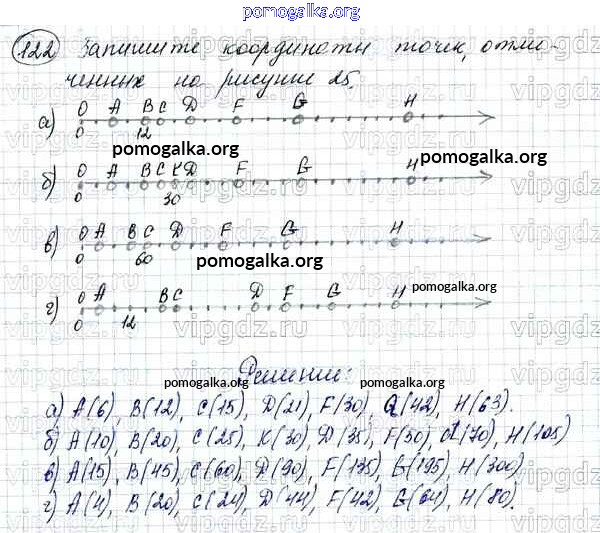 pomogalka.org
122 Запишите координаты точек, отме-
ченных на рисунке 25.
а) O A B C D F G H
0 12
pomogalka.org
pomogalka.org
б) O A B C K D F G H
0 30
в) O A B C D F G H
0 60
pomogalka.org
pomogalka.org
г) O A B C D F G H
0 12
Решение:
pomogalka.org pomogalka.org
а) A(6), B(12), C(15), D(21), F(30), G(42), H(63).
б) A(10), B(20), C(25), K(30), D(35), F(50), G(70), H(105)
в) A(15), B(45), C(60), D(90), F(135), G(195), H(300).
г) A(4), B(20), C(24), D(44), F(42), G(64), H(80).
vipgdz